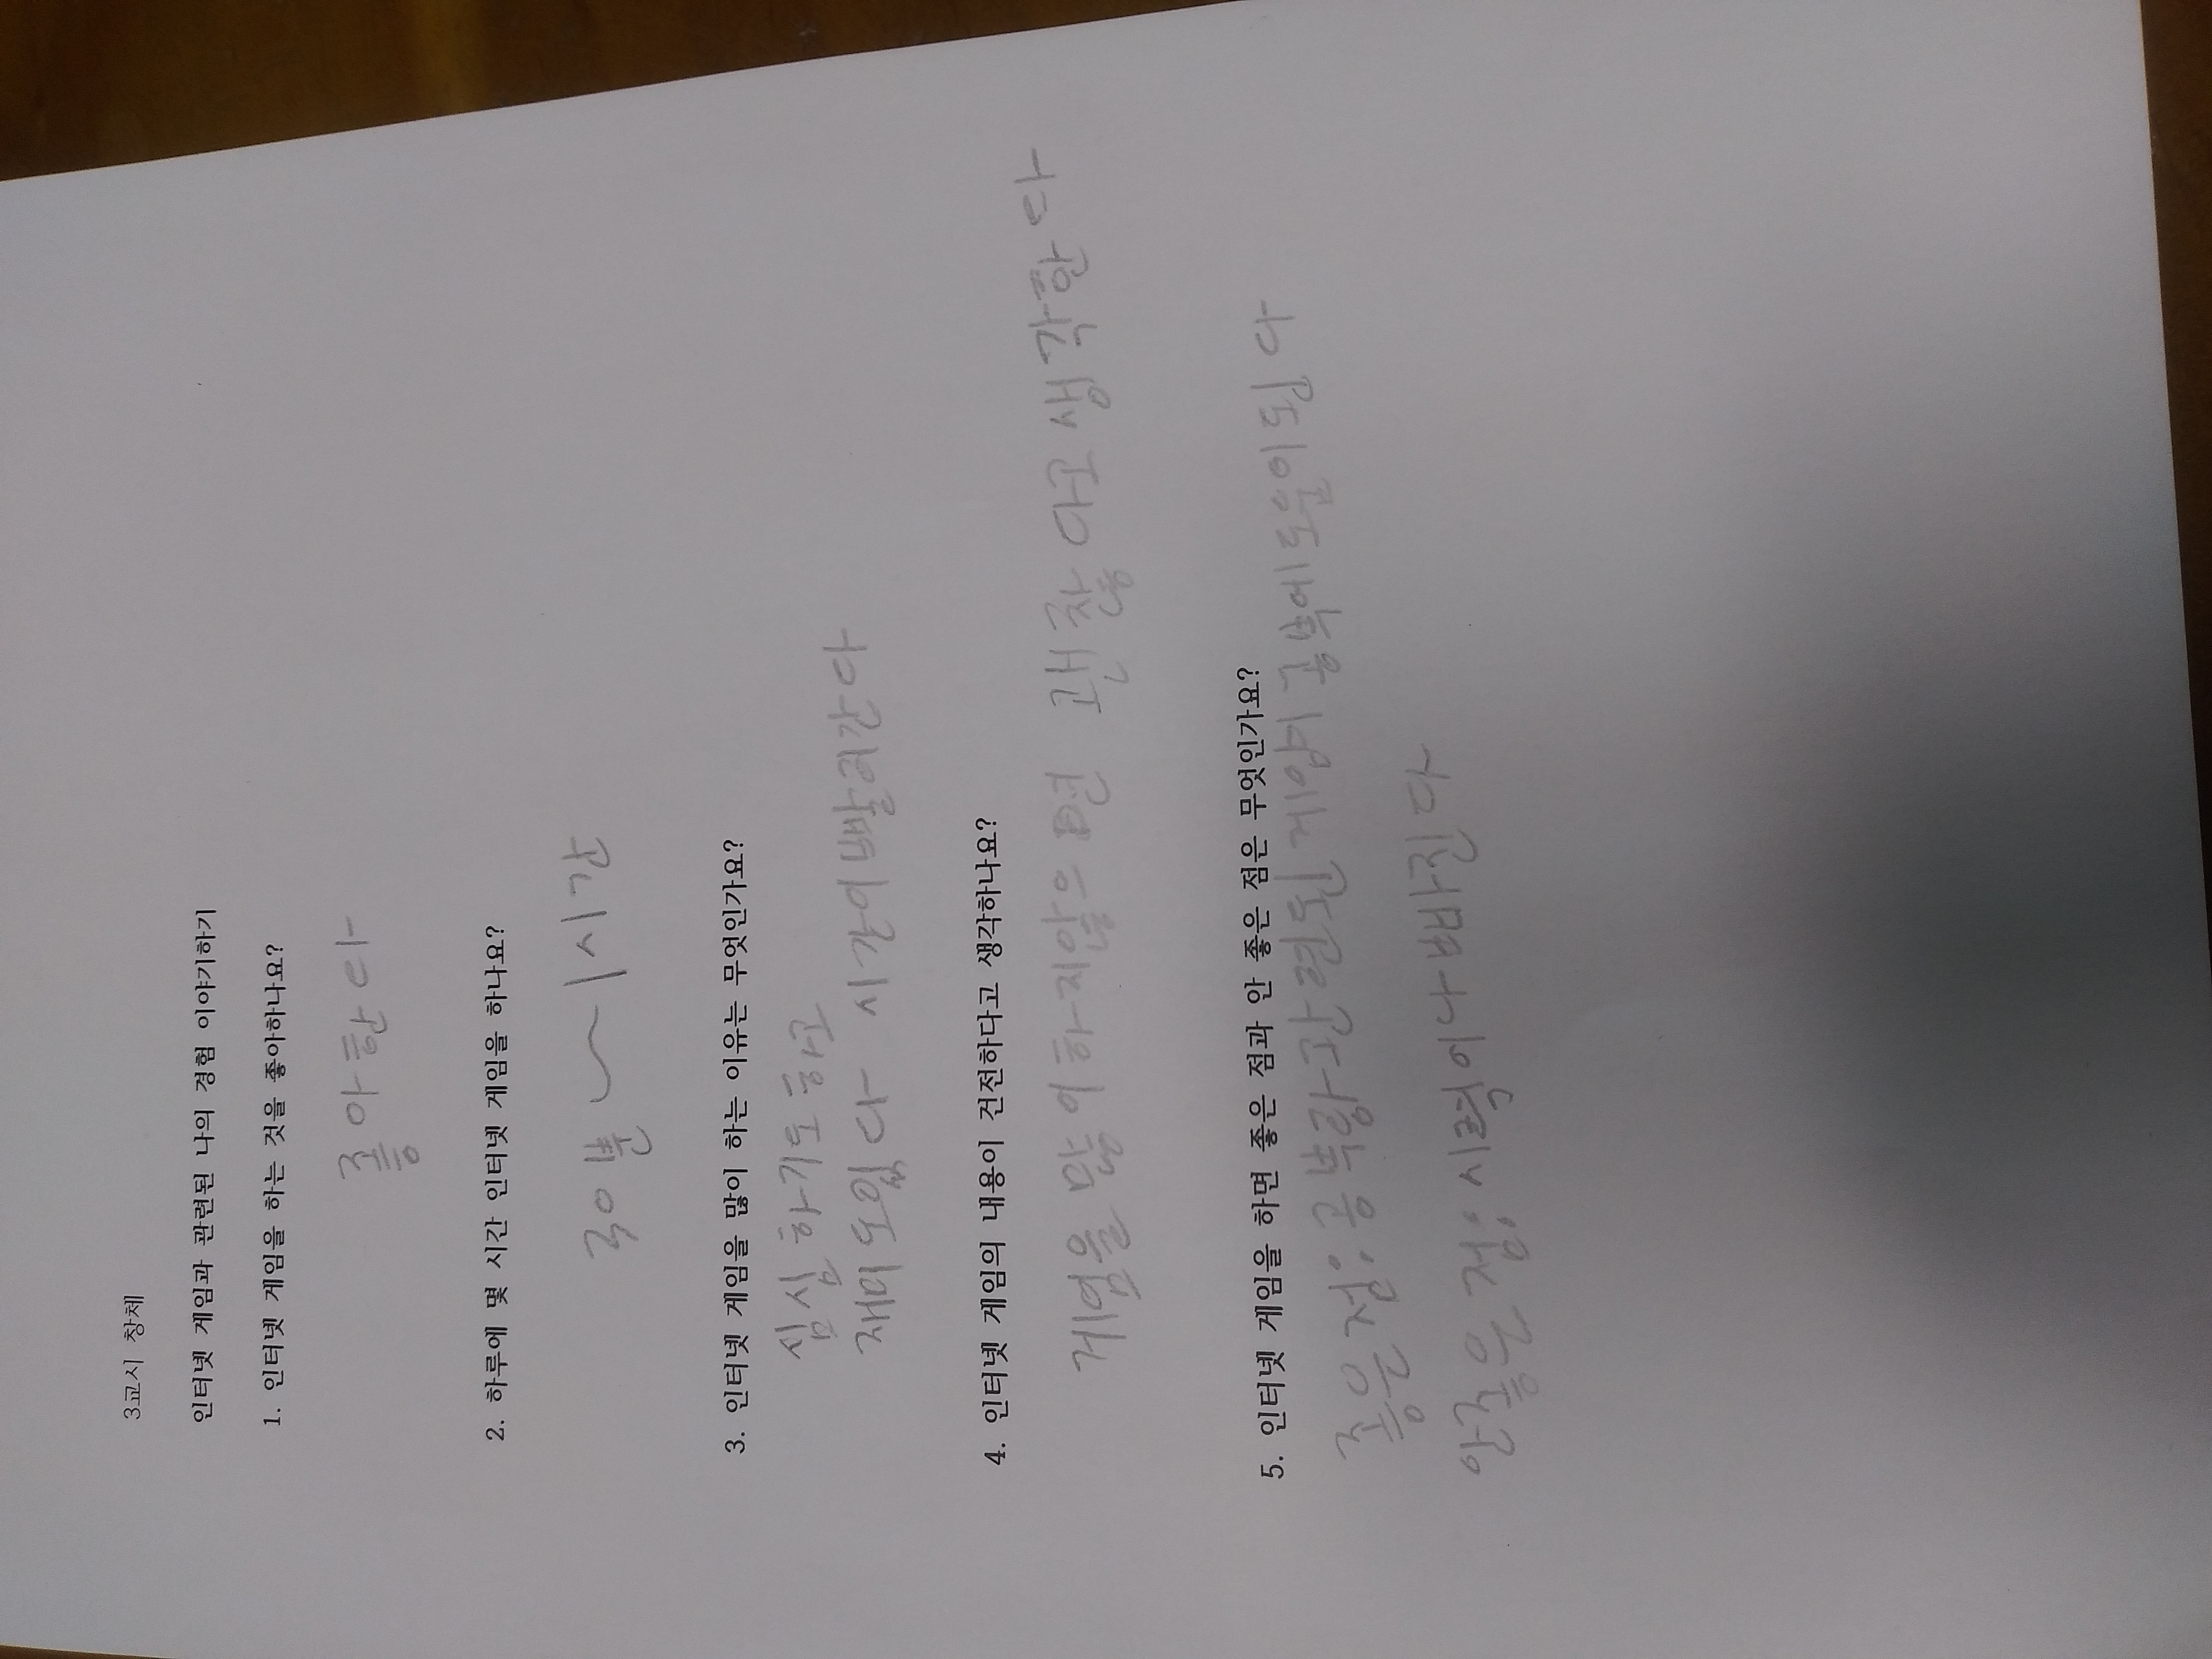 3교시 창체
인터넷 게임과 관련된 나의 경험 이야기하기
1. 인터넷 게임을 하는 것을 좋아하나요?
좋아한다
2. 하루에 몇 시간 인터넷 게임을 하나요?
30분 ~ 1시간
3. 인터넷 게임을 많이 하는 이유는 무엇인가요?
심심하기도하고
재미도있다 시간이빨리간다
4. 인터넷 게임의 내용이 건전하다고 생각하나요?
게임을 많이하지않으면 괜찮다고생각한다
5. 인터넷 게임을 하면 좋은 점과 안 좋은 점은 무엇인가요?
좋은점: 공부랑관련된게임이 공부에도움이된다
안좋은점: 시력이나빠진다